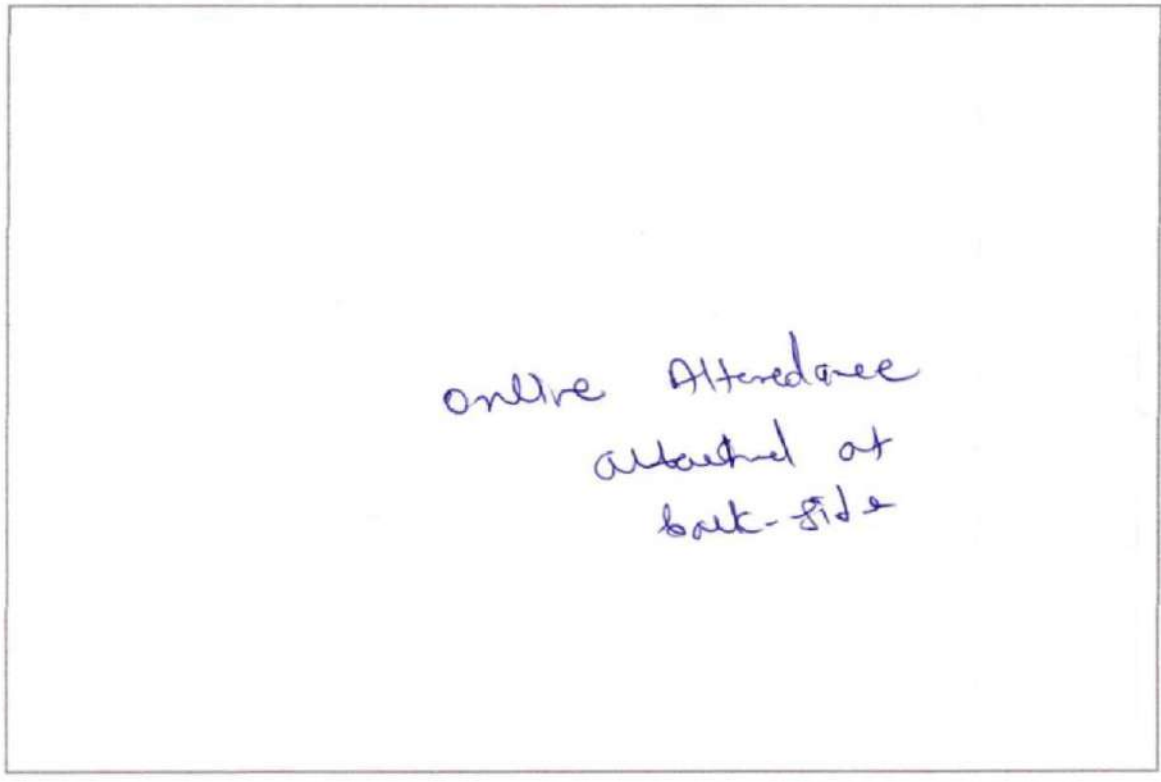 online Attendance
attached at
back-side